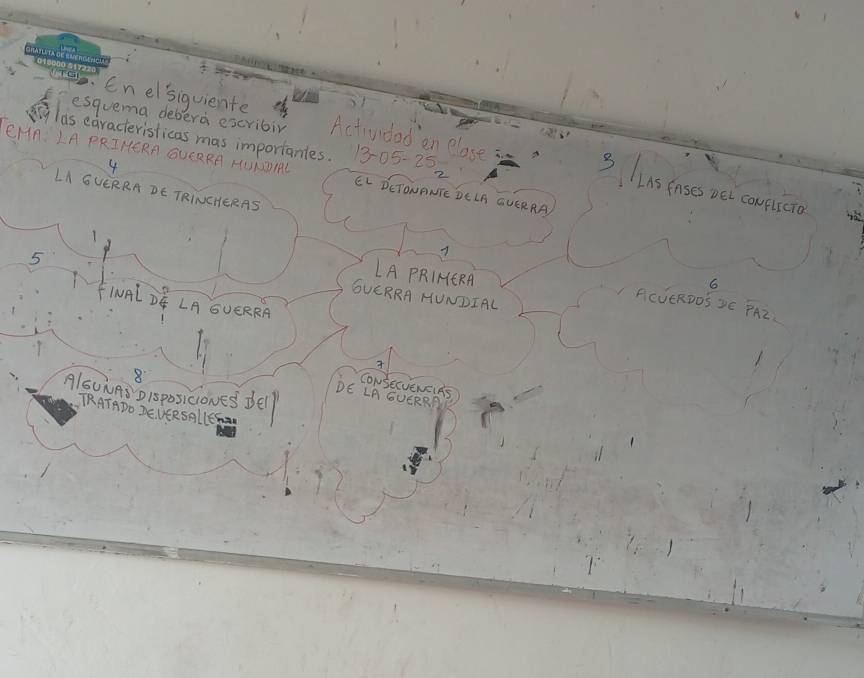 LINEA
GRATUITA DE EMERGENCIAS
018000 517220
En el siguiente
esquema deberá escribir
las características mas importantes.
TEMA: LA PRIMERA GUERRA MUNDIAL
Actividad en Clase
13-05-25
4
LA GUERRA DE TRINCHERAS
2
EL DETONANTE DE LA GUERRA
3
LAS FASES DEL CONFLICTO
1
LA PRIMERA
GUERRA MUNDIAL
5
FINAL DE LA GUERRA
6
ACUERDOS DE PAZ
8
AlGUNAS DISPOSICIONES DEl
TRATADO DE VERSALLES
7
CONSECUENCIAS
DE LA GUERRA